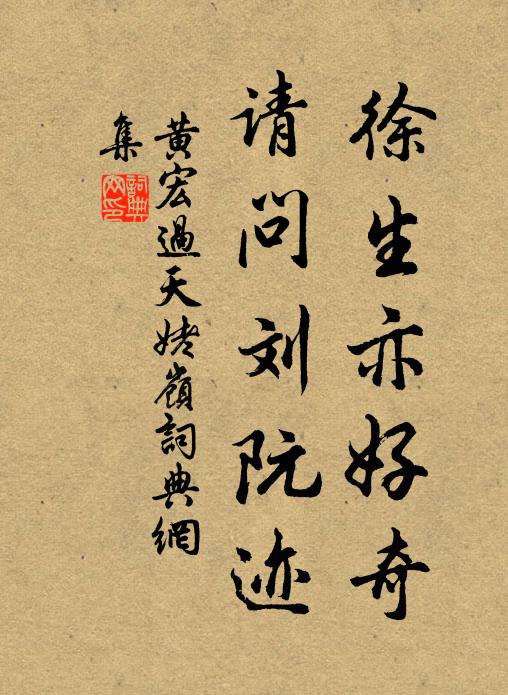 徐生亦好奇
请问刘阮迹
黄宏過天姥嶺詞典網
集
詞典
网印